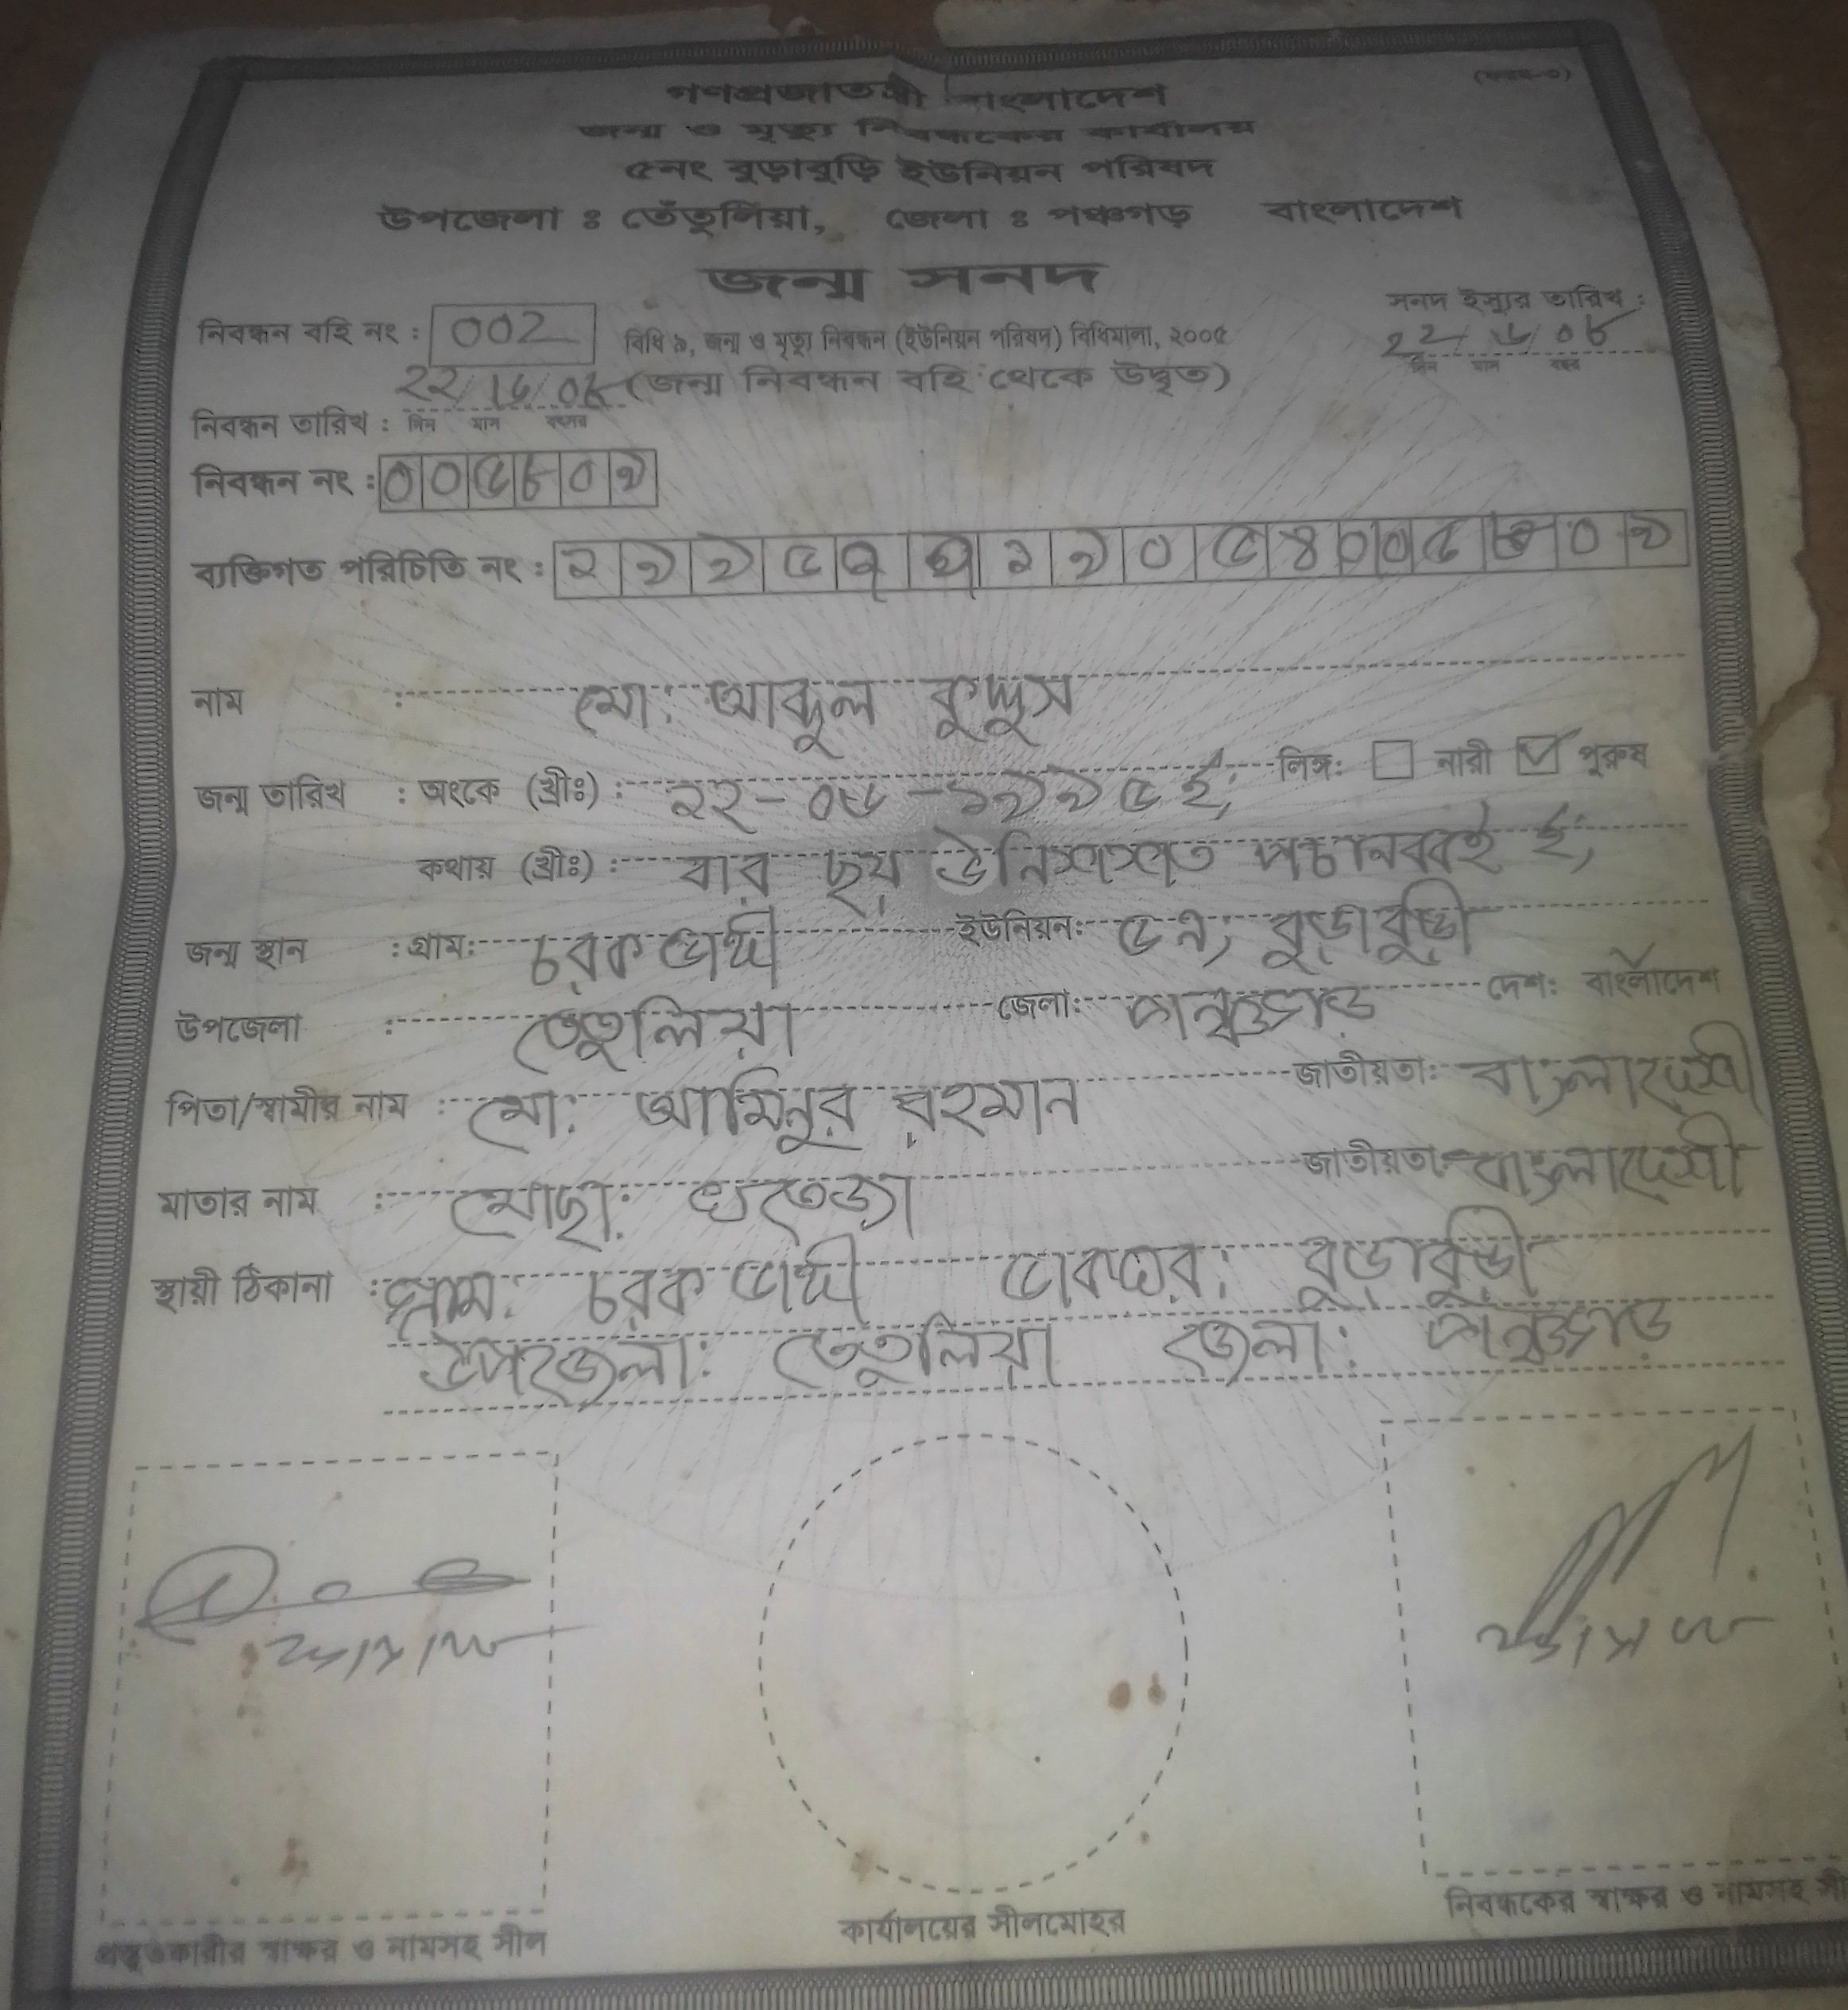 (ফরম-৩)
গণপ্রজাতন্ত্রী বাংলাদেশ
জন্ম ও মৃত্যু নিবন্ধকের কার্যালয়
৫নং বুড়াবুড়ি ইউনিয়ন পরিষদ
উপজেলা ঃ তেঁতুলিয়া, জেলা ঃ পঞ্চগড় বাংলাদেশ
জন্ম সনদ
সনদ ইস্যুর তারিখ :
নিবন্ধন বহি নং : 002 বিধি ৯, জন্ম ও মৃত্যু নিবন্ধন (ইউনিয়ন পরিষদ) বিধিমালা, ২০০৫ ২২/৬/০৮
দিন মাস বছর
২২/৬/০৮ (জন্ম নিবন্ধন বহি থেকে উদ্ধৃত)
নিবন্ধন তারিখ : দিন মাস বৎসর
নিবন্ধন নং : ০০৫৮০৯
ব্যক্তিগত পরিচিতি নং :
নাম : মো: আব্দুল কুদ্দুস
জন্ম তারিখ : অংকে (খ্রীঃ) : ২২-০৬-১৯৯৫ইং লিঙ্গ: নারী পুরুষ
কথায় (খ্রীঃ) : বার ছয় উনিশশত পচানব্বই ইং
জন্ম স্থান : গ্রাম: চরকডাঙ্গী ইউনিয়ন: ৫নং বুড়াবুড়ী
উপজেলা : তেতুলিয়া জেলা: পঞ্চগড় দেশ: বাংলাদেশ
পিতা/স্বামীর নাম : মো: আমিনুর রহমান জাতীয়তা: বাংলাদেশী
মাতার নাম : মোছা: খতেজা জাতীয়তা: বাংলাদেশী
স্থায়ী ঠিকানা : গ্রাম: চরকডাঙ্গী ডাকঘর: বুড়াবুড়ী
উপজেলা: তেতুলিয়া জেলা: পঞ্চগড়
প্রস্তুতকারীর স্বাক্ষর ও নামসহ সীল
কার্যালয়ের সীলমোহর
নিবন্ধকের স্বাক্ষর ও নামসহ সী